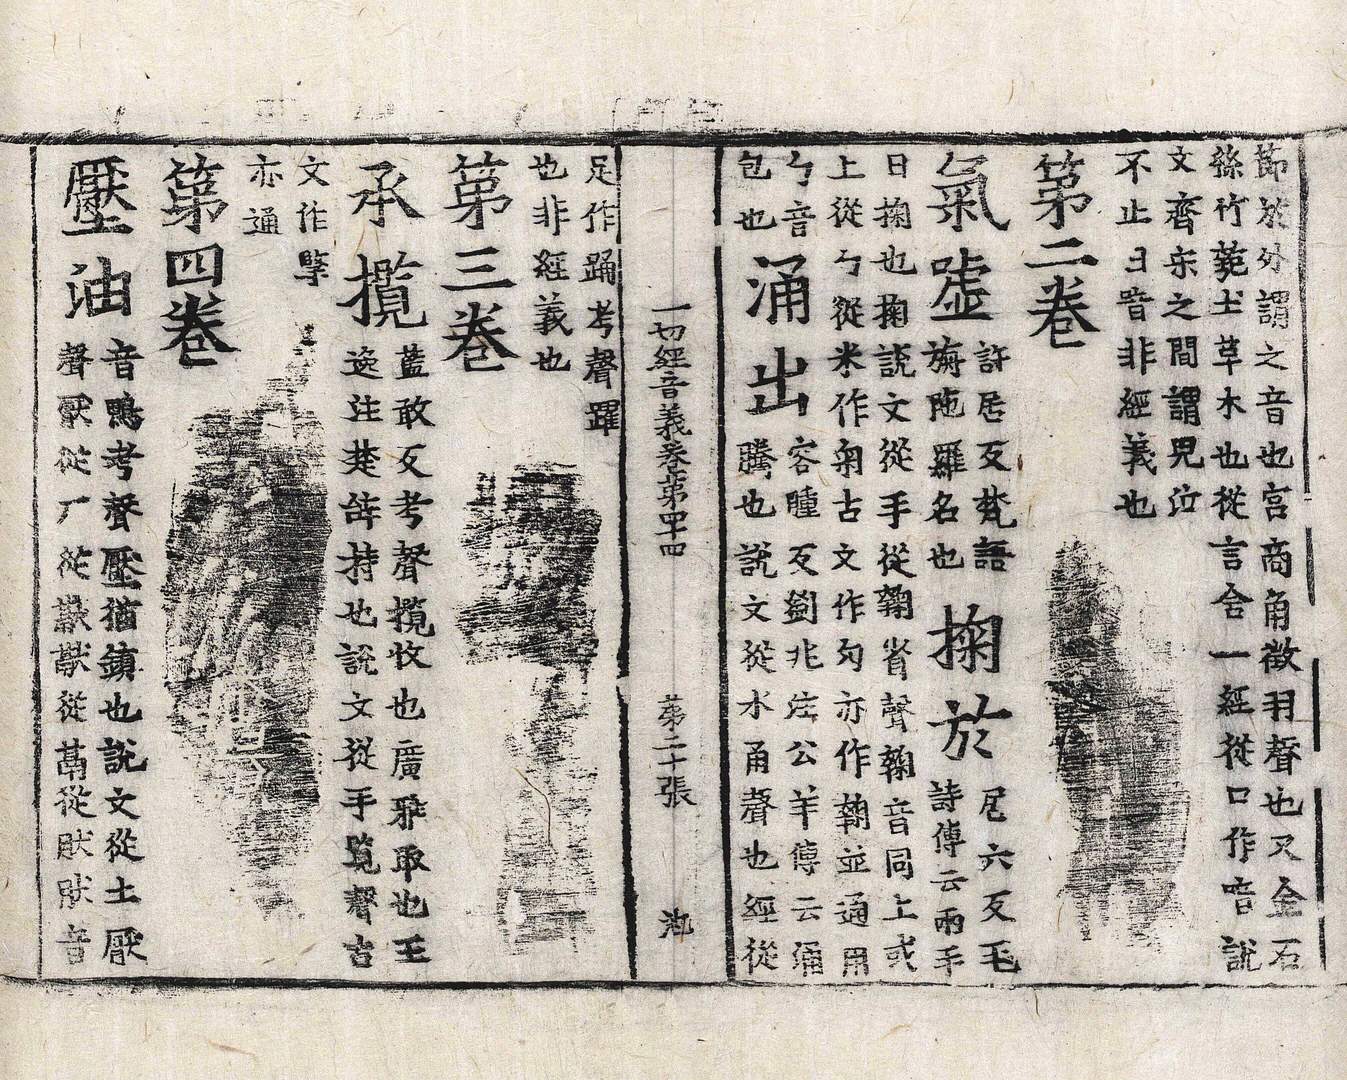 節於外謂之音也宮商角徵羽聲也又金石
絲竹匏土草木也從言含一經從口作喑說
文齊宋之間謂兒泣
不止曰喑非經義也
第二卷
氣噓
許居反梵語
旃陁羅名也
掬於
居六反毛
詩傳云兩手
曰掬也掬說文從手從鞠省聲鞠音同上或
上從勹從米作匊古文作匊亦作鞠並通用
勹音
包也
涌出
容腫反劉兆注公羊傳云涌
騰也說文從水甬聲也經從
一切經音義卷第四十四
第二十張
池
足作踊考聲躍
也非經義也
第三卷
承攬
藍敢反考聲攬收也廣雅取也王
逸注楚辭持也說文從手覧聲古
文作擥
亦通
第四卷
壓油
音鴨考聲壓猶鎮也說文從土厭
聲厭從厂從猒猒從甘從肰肰音